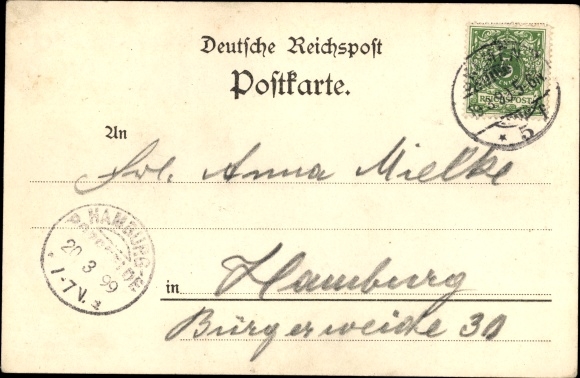 Deutsche Reichspost
Postkarte.
5
REICHSPOST
* 5
An
Frl. Anna Mielke
HAMBURG-
20 3 99
1-7V.
in Hamburg
Bürgerweide 30